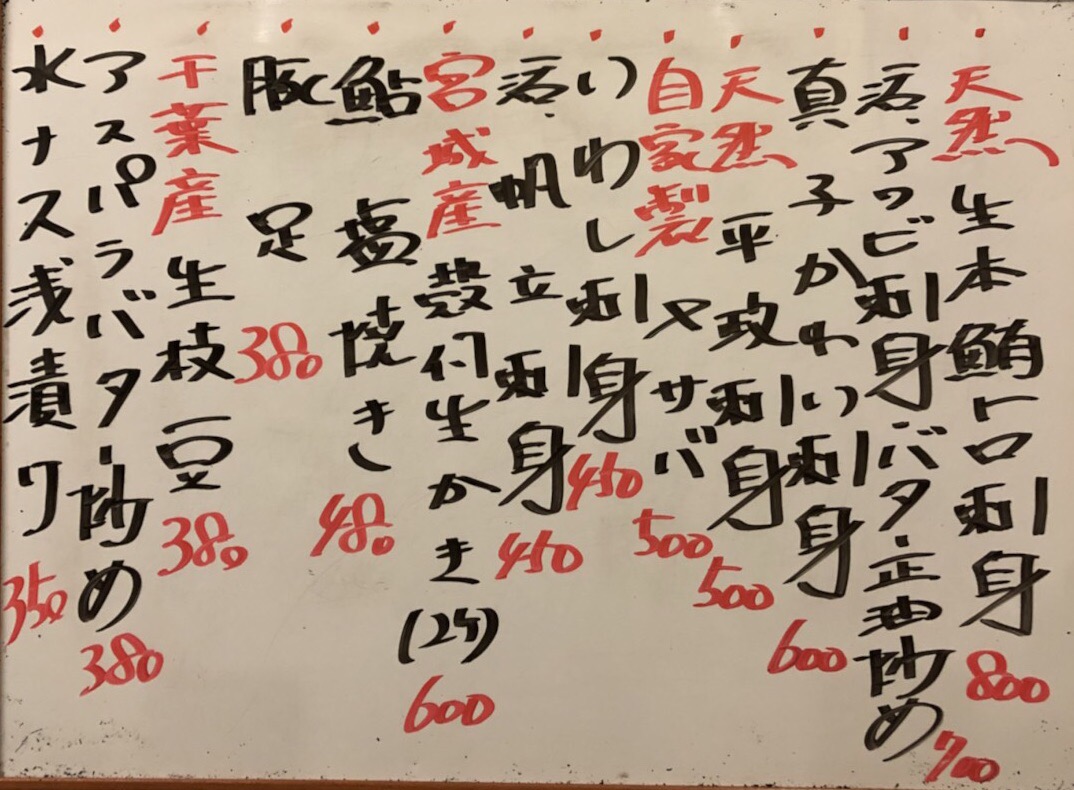 天然 生本鮪トロ刺身 800
活、アワビ刺身バター正油炒め 700
真子かれい刺身 600
天然 平政刺身 500
自家製 〆サバ 500
いわし刺身 450
活、帆立刺身 450
宮城産 殻付生かき(2ヶ) 600
鮎塩焼き 480
豚足 380
千葉産 生枝豆 380
アスパラバター炒め 380
水ナス浅漬ケ 350